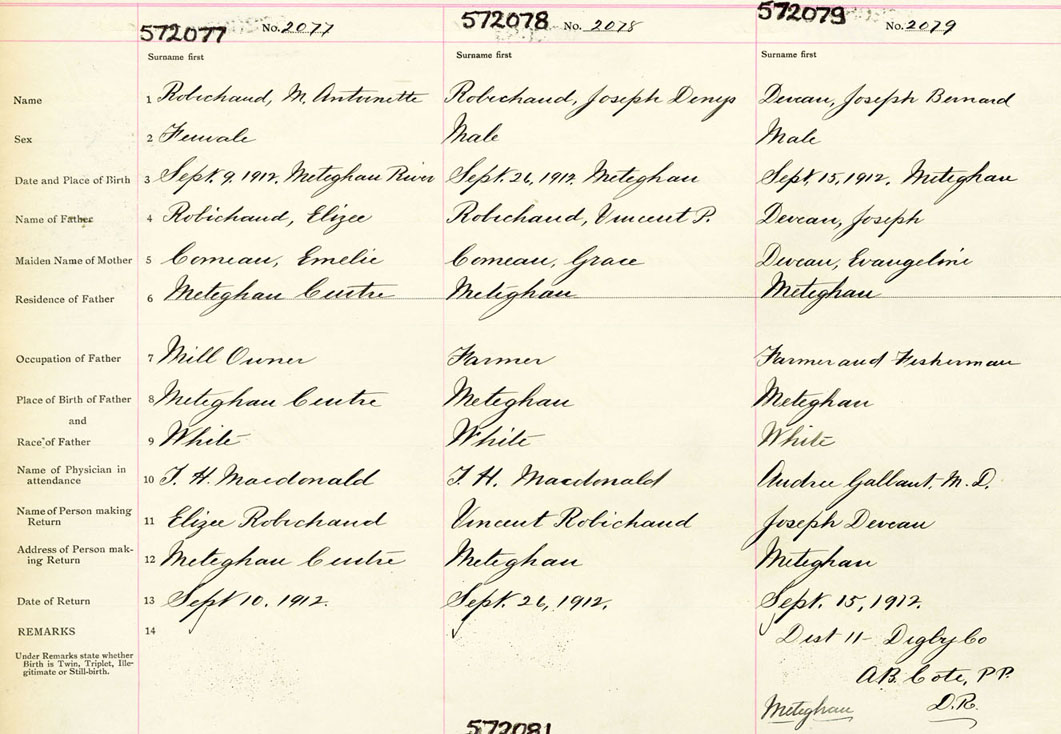 572077 No. 2077 572078 No. 2078 572079 No. 2079
Surname first Surname first Surname first
Name 1 Robichaud, M. Antoinette Robichaud, Joseph Denys Deveau, Joseph Bernard
Sex 2 Female Male Male
Date and Place of Birth 3 Sept. 9, 1912, Meteghan River Sept. 26, 1912. Meteghan Sept. 15, 1912, Meteghan
Name of Father 4 Robichaud, Elizee Robichaud, Vincent P. Deveau, Joseph
Maiden Name of Mother 5 Comeau, Emelie Comeau, Grace Deveau, Evangeline
Residence of Father 6 Meteghan Centre Meteghan Meteghan
Occupation of Father 7 Mill Owner Farmer Farmer and Fisherman
Place of Birth of Father 8 Meteghan Centre Meteghan Meteghan
and
Race of Father 9 White White White
Name of Physician in
attendance 10 T. H. Macdonald T. H. Macdonald Andree Gallant. M. D.
Name of Person making
Return 11 Elizee Robichaud Vincent Robichaud Joseph Deveau
Address of Person mak-
ing Return 12 Meteghan Centre Meteghan Meteghan
Date of Return 13 Sept 10. 1912. Sept. 26, 1912. Sept. 15, 1912.
REMARKS 14 Dist 11 - Digby Co
Under Remarks state whether
Birth is Twin, Triplet, Ille-
gitimate or Still-birth.
A.B. Cote, P.P.
Meteghan D.R.
572081